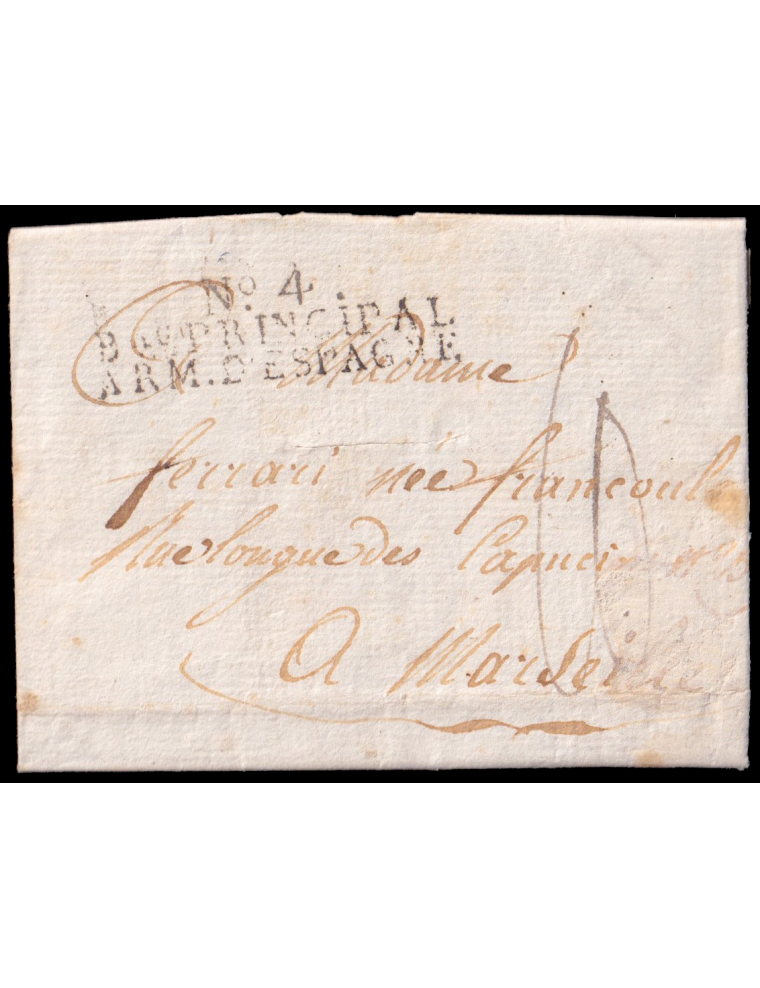 No. 4.
Bau PRINCIPAL
ARM. D'ESPAGNE
A Madame
ferrari née francoul
Rue longue des Capucins n°
A Marseille